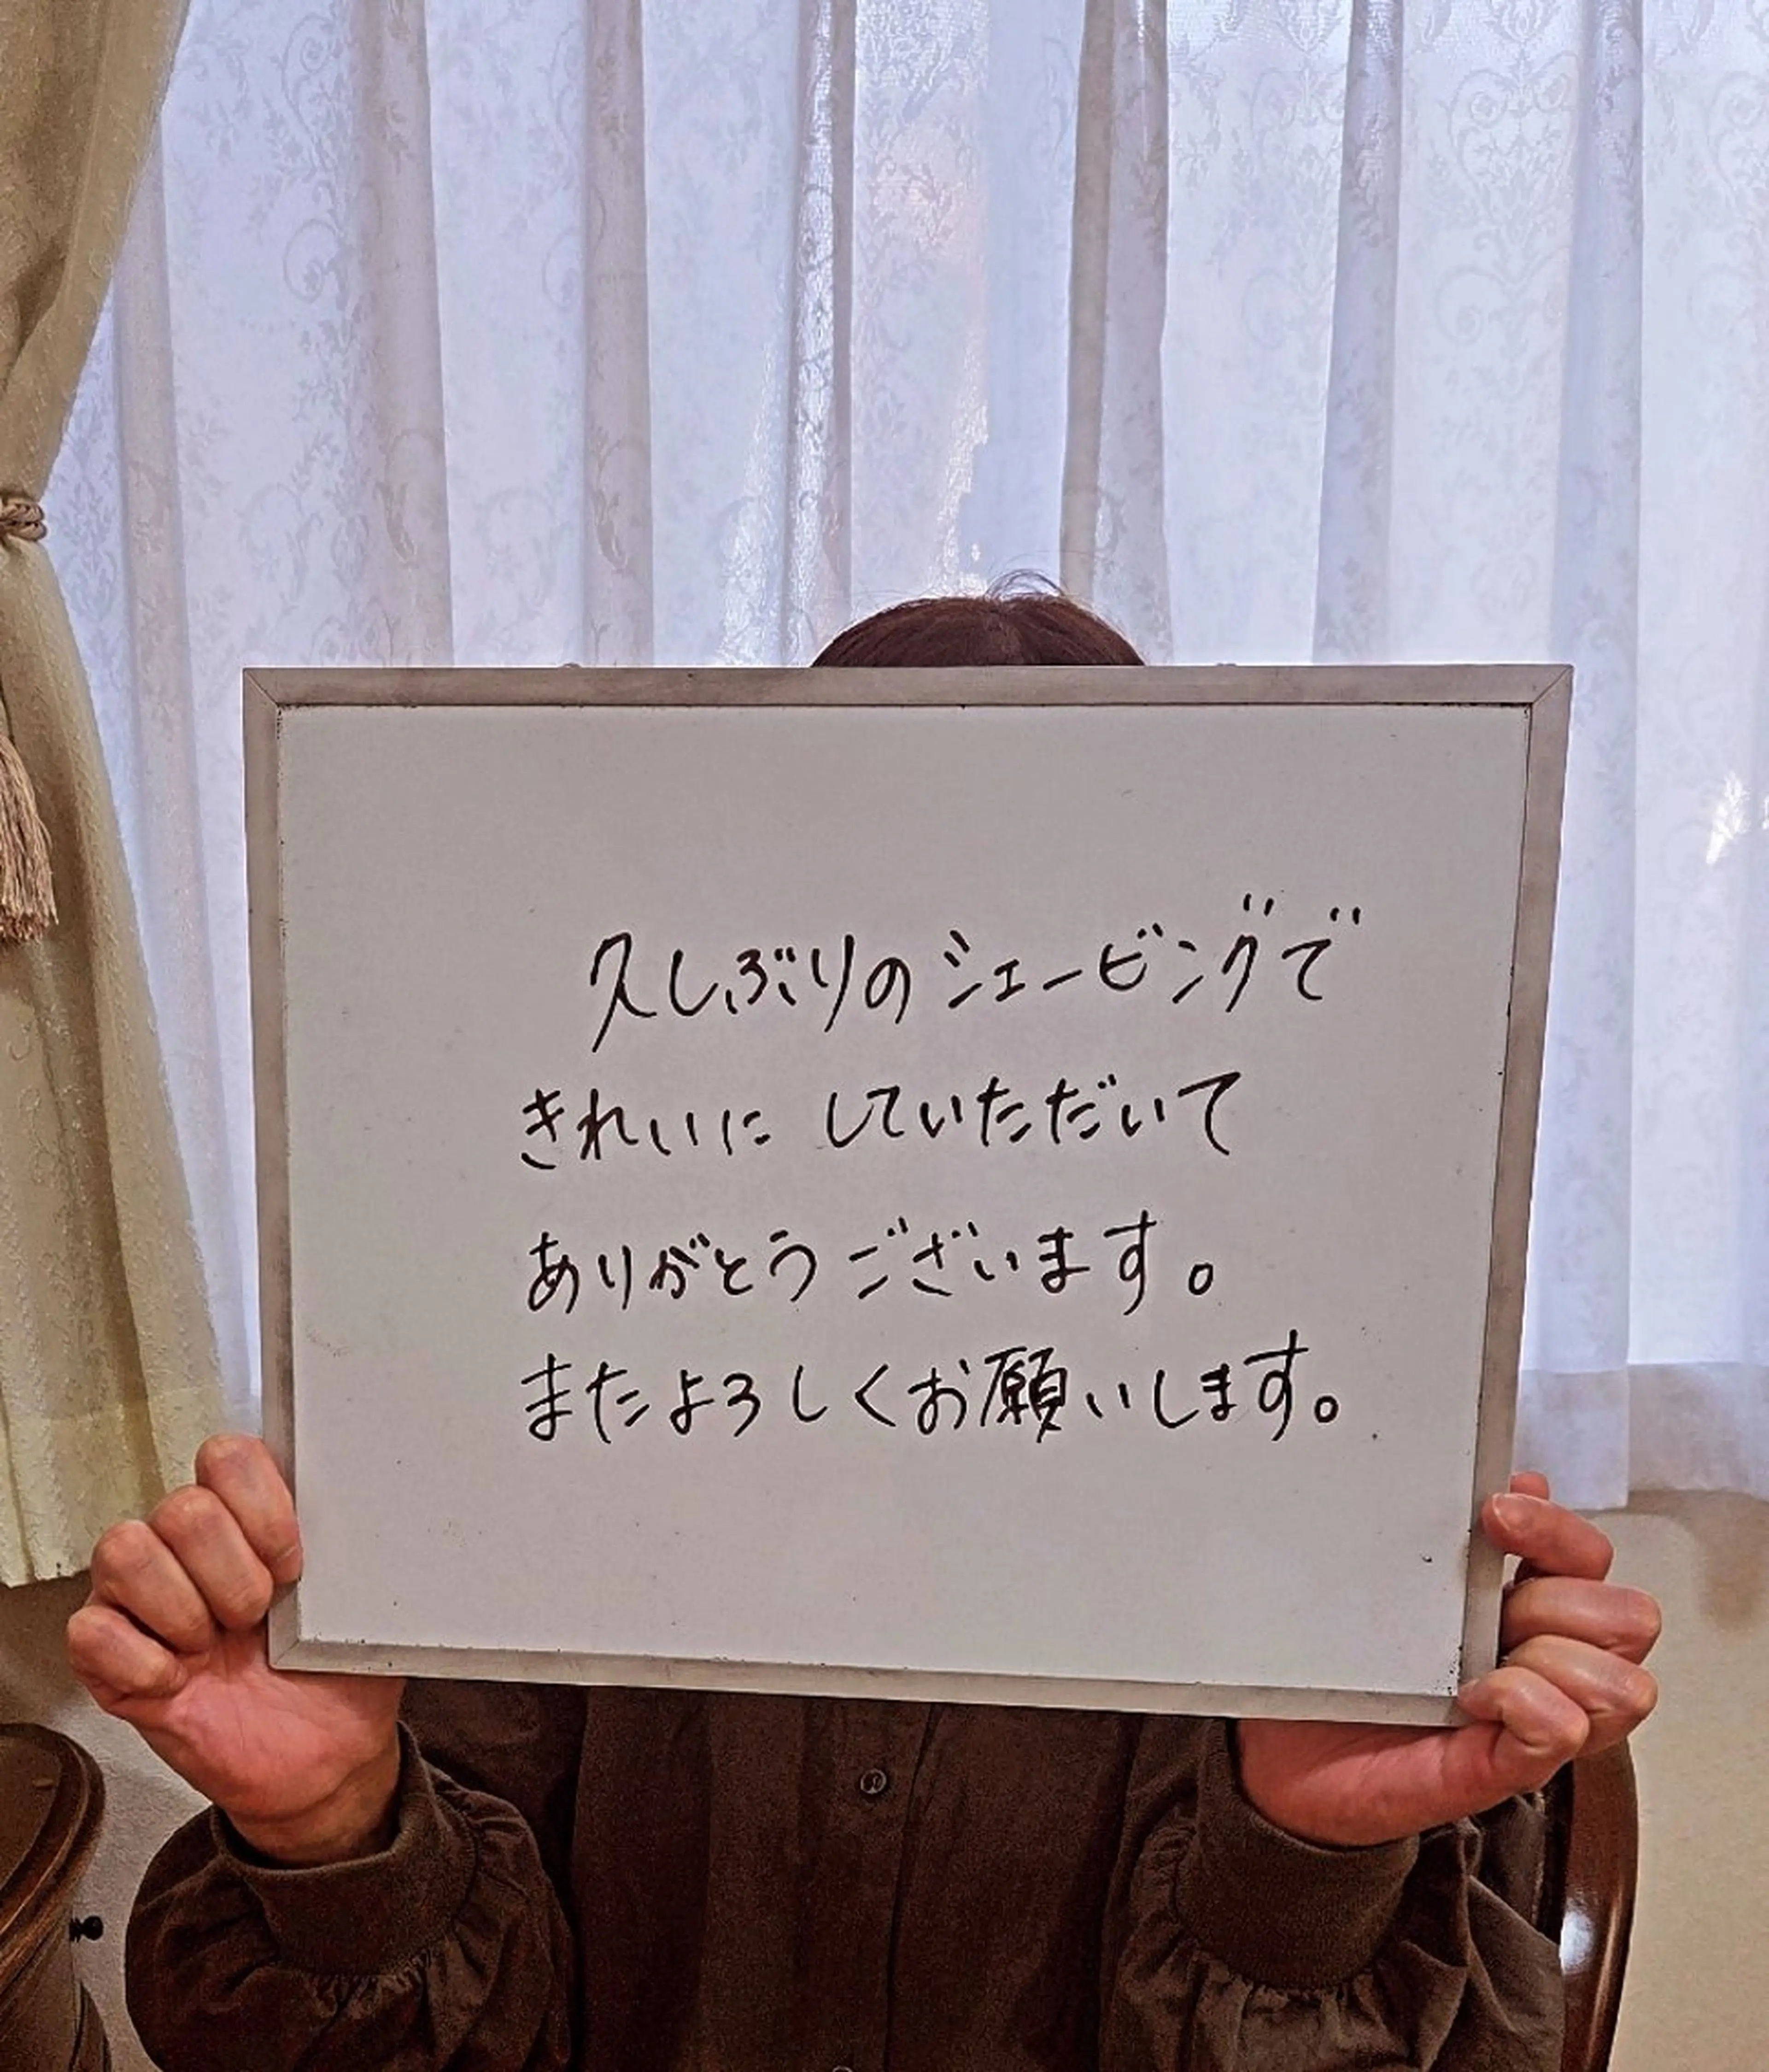 久しぶりのシェービングで
きれいに していただいて
ありがとうございます。
またよろしくお願いします。